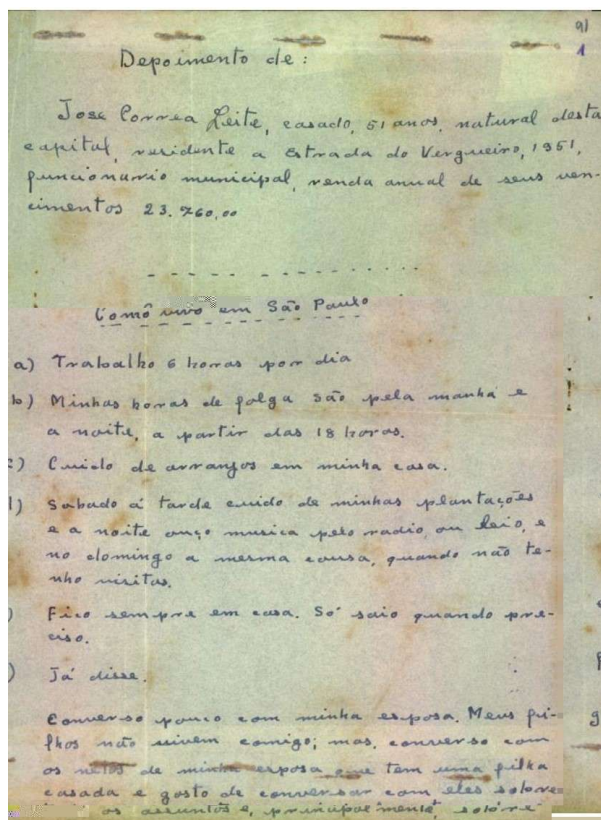 91
1
Depoimento de:
Jose Correa Leite, casado, 51 anos, natural desta
capital, residente a Estrada do Vergueiro, 1951,
funcionario municipal, renda anual de seus ven-
cimentos 23.760,00
Como vivo em São Paulo
a) Trabalho 6 horas por dia
b) Minhas horas de folga São pela manhã e
a noite, a partir das 18 horas.
c) Cuido de arranjos em minha casa.
d) Sabado á tarde cuido de minhas plantações
e a noite ouço musica pelo radio, ou leio, e
no domingo a mesma cousa, quando não te-
nho visitas.
) Fico sempre em casa. Só saio quando pre-
ciso.
) Já disse.
Converso pouco com minha esposa. Meus fi-
lhos não vivem comigo; mas, converso com
os netos de minha esposa que tem uma filha
casada e gosto de conversar com eles sobre
os assuntos e, principalmente, sobre